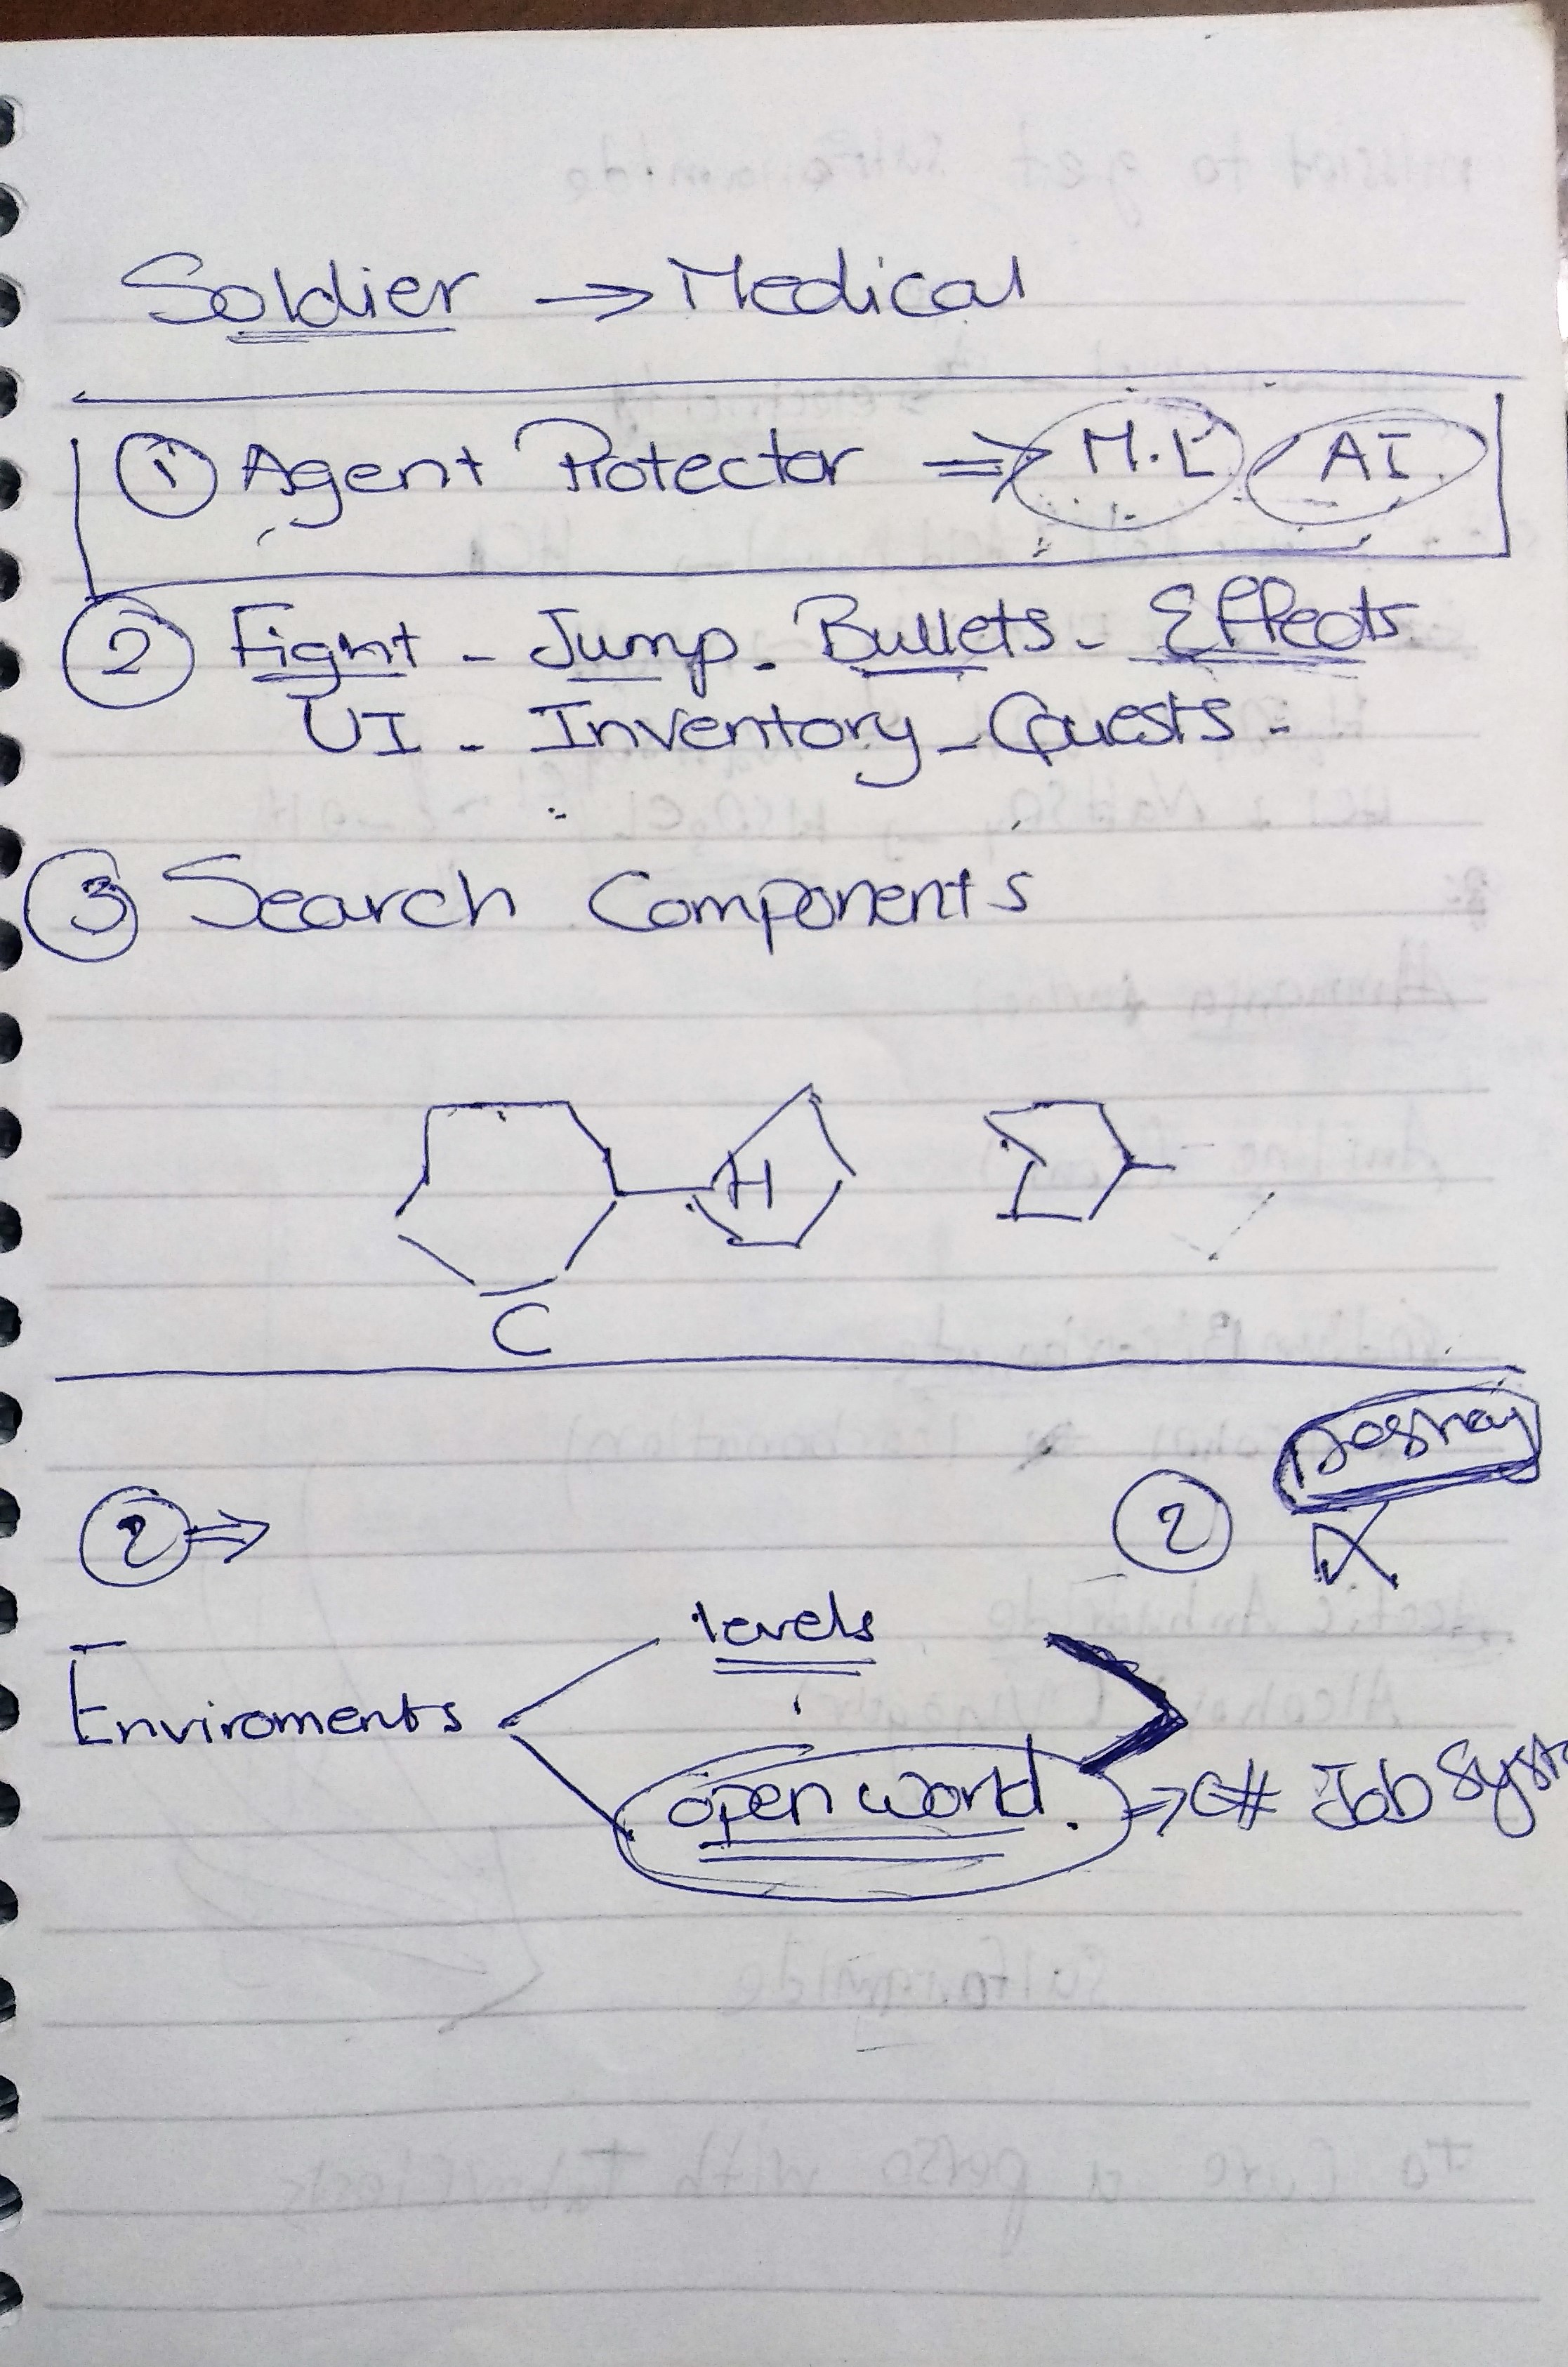 Soldier → Medical
① Agent Protector ⇒ M.L AI
② Fight - Jump - Bullets - Effects
UI - Inventory - Quests -
③ Search Components
H
C
Destroy
② ⇒ ②
levels
Enviroments
open world. ⇒ C# Job Syst